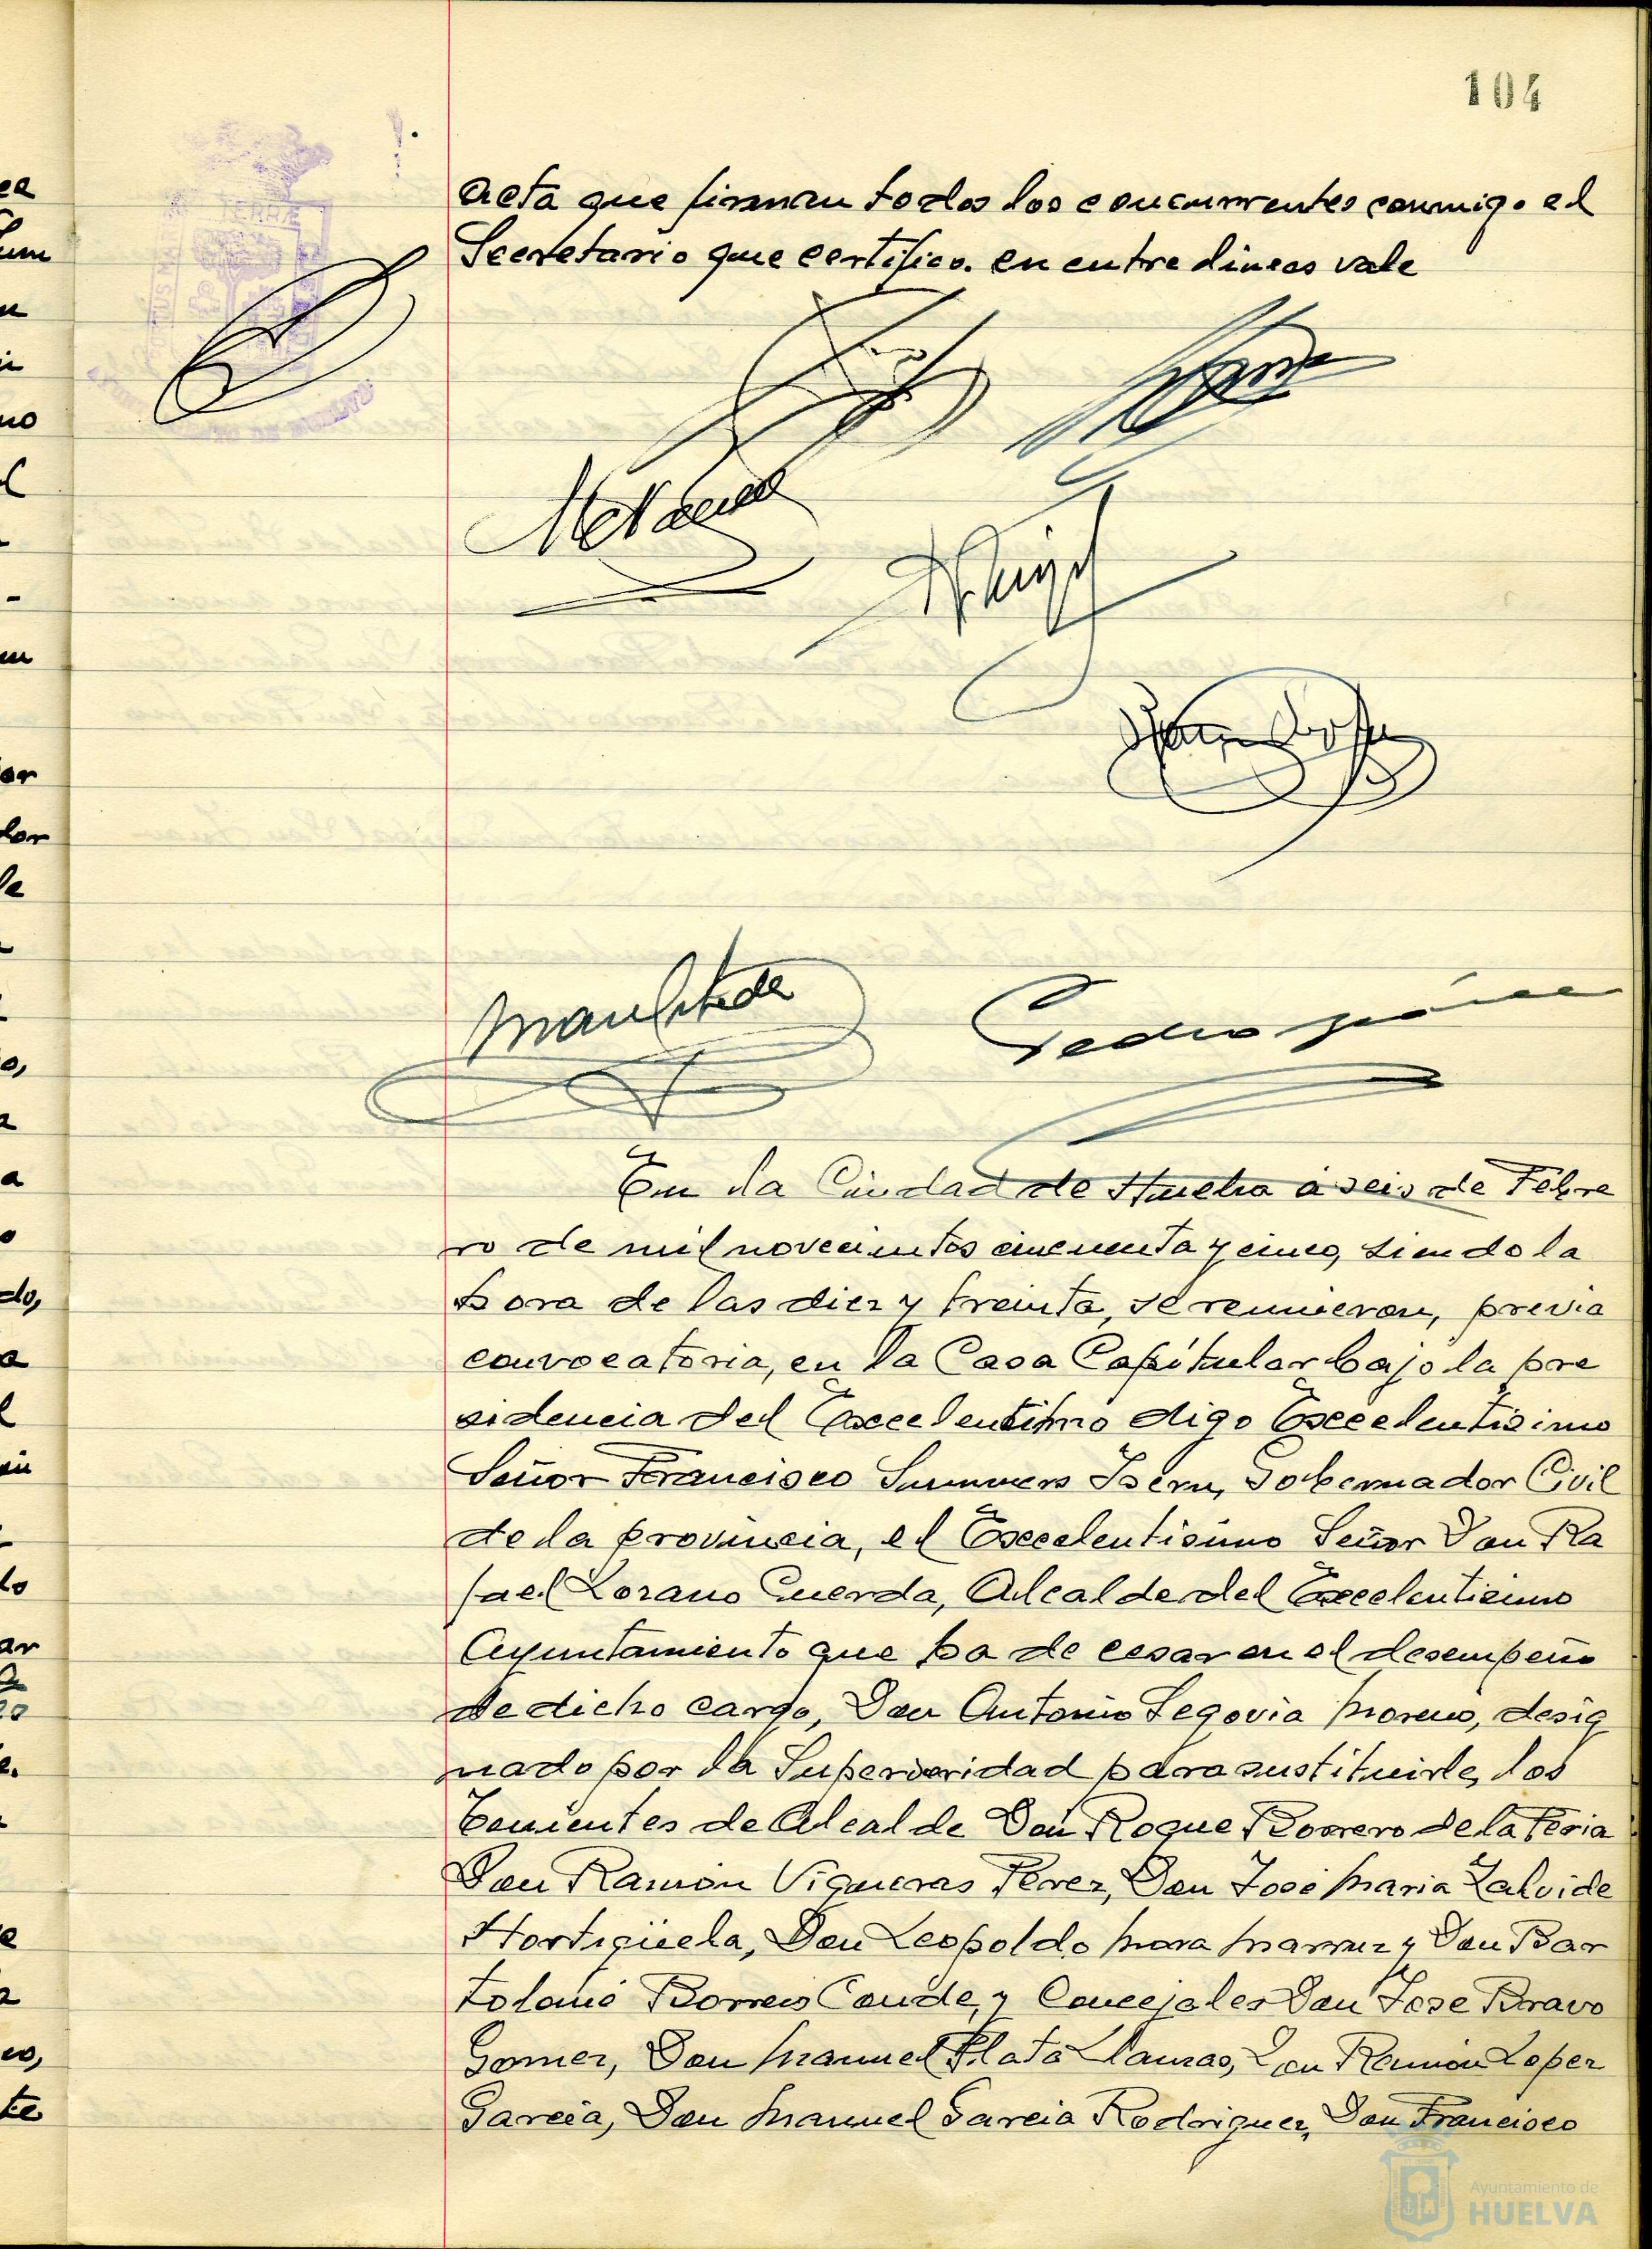 104
acta que firman todos los concurrentes conmigo el
Secretario que certifico. en entre lineas vale
En la Ciudad de Huelva a seis de Febre
ro de mil novecientos cincuenta y cinco, siendo la
hora de las diez y treinta, se reunieron, previa
convocatoria, en la Casa Capitular bajo la pre
sidencia del Excelentitimo digo Excelentisimo
Señor Francisco Summers Isern, Gobernador Civil
de la provincia, el Excelentisimo Señor Don Ra
fael Lozano Cuerda, Alcalde del Excelentisimo
Ayuntamiento que ha de cesar en el desempeño
de dicho cargo, Don Antonio Segovia Moreno, desig
nado por la Superioridad para sustituirle, los
Tenientes de Alcalde Don Roque Romero de la Feria
Don Ramón Vigueras Perez, Don José Maria Zalvide
Hortigüela, Don Leopoldo Mora y Don Bar
tolomé Conde, y Concejales Don Jose Bravo
Gomez, Don Manuel Plata Llanzas, Don Ramon Lopez
Garcia, Don Manuel Garcia Rodriguez, Don Francisco
Ayuntamiento de
HUELVA